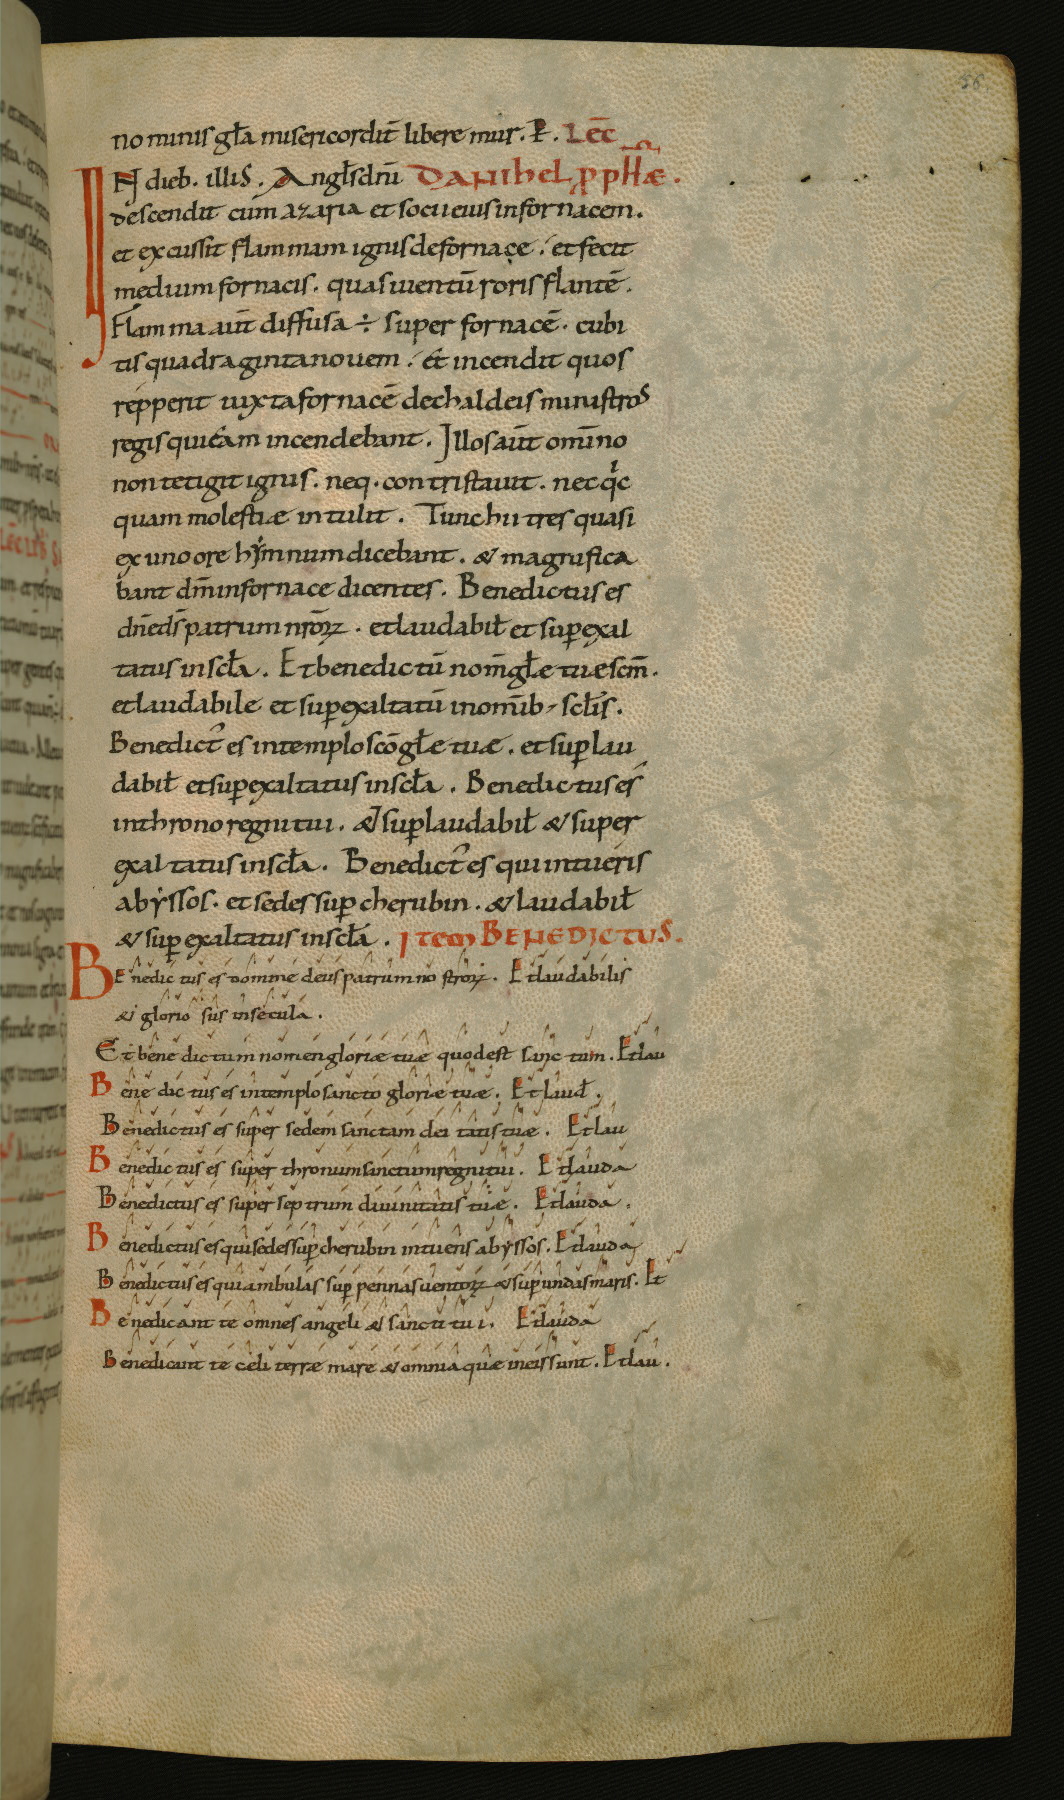 56
nominis gl̅a misericordit̅ liberemur. P̅. Lec̅
IN dieb. illis. Angl̅s dn̅i DANIHEL PPHÆ.
descendit cum azaria et sociis eius in fornacem.
et excussit flammam ignis de fornace. et fecit
medium fornacis. quasi uentu̅ roris flante̅.
Flamma aut̅ diffusa ÷ super fornace̅. cubi
tis quadraginta nouem. Et incendit quos
repperit iuxta fornace̅ de chaldeis ministros
regis qui eam incendebant. Illos aut̅ omi̅no
non tetigit ignis. neq. contristauit. nec qc
quam molestiæ intulit. Tunc hii tres quasi
ex uno ore hẏmnum dicebant. & magnifica
bant dm̅ in fornace dicentes. Benedictus es
dn̅e ds̅ patrum nr̅oꝝ. et laudabil̅ et sup̅exal
tatus in scl̅a. Et benedictu̅ nom̅ gl̅e tuæ scm̅.
et laudabile et sup̅exaltatu̅ in omi̅b; scl̅is.
Benedict᾽ es in templo sco̅ gl̅e tuæ. et sup̅lau
dabil̅ et sup̅exaltatus in scl̅a. Benedictus es
in throno regni tui. & sup̅laudabil̅ & super
exaltatus in scl̅a. Benedict᾽ es qui intueris
abẏssos. et sedes sup̅ cherubin. & laudabil̅
& sup̅exaltatus in scl̅a. Item BENEDICTUS.
Benedictus es domine deus patrum nostroꝝ. Et laudabilis
& gloriosus in secula.
Et benedictum nomen gloriæ tuæ quod est sanctum. Et lau
Benedictus es in templo sancto gloriæ tuæ. Et laud̅.
Benedictus es super sedem sanctam deitatis tuæ. Et lau
Benedictus es super thronum sanctum regni tui. Et lauda
Benedictus es super septrum diuinitatis tuæ. Et lauda.
Benedictus es qui sedes sup̅ cherubin intuens abẏssos. Et lauda
Benedictus es qui ambulas sup̅ pennas uentoꝝ & sup̅ undas maris. Et
Benedicant te omnes angeli & sancti tui. Et lauda
Benedicant te celi terræ mare & omnia quæ in eis sunt. Et lau.